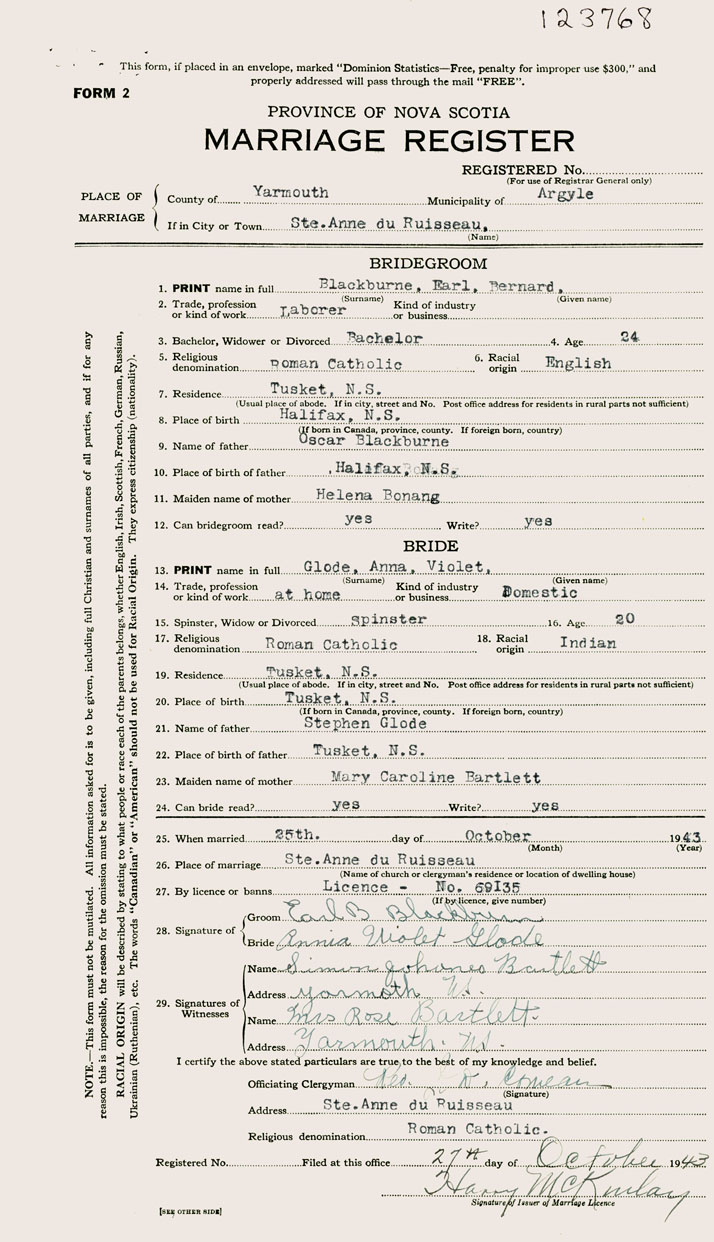 123768
This form, if placed in an envelope, marked “Dominion Statistics—Free, penalty for improper use $300,” and
properly addressed will pass through the mail “FREE”.
FORM 2
PROVINCE OF NOVA SCOTIA
MARRIAGE REGISTER
REGISTERED No.
(For use of Registrar General only)
PLACE OF MARRIAGE
County of Yarmouth Municipality of Argyle
If in City or Town Ste.Anne du Ruisseau,
(Name)
BRIDEGROOM
1. PRINT name in full Blackburne, Earl, Bernard,
(Surname) (Given name)
2. Trade, profession or kind of work Laborer Kind of industry or business
3. Bachelor, Widower or Divorced Bachelor 4. Age 24
5. Religious denomination Roman Catholic 6. Racial origin English
7. Residence Tusket, N.S.
(Usual place of abode. If in city, street and No. Post office address for residents in rural parts not sufficient)
8. Place of birth Halifax, N.S.
(If born in Canada, province, county. If foreign born, country)
9. Name of father Oscar Blackburne
10. Place of birth of father Halifax, N.S.
11. Maiden name of mother Helena Bonang
12. Can bridegroom read? yes Write? yes
BRIDE
13. PRINT name in full Glode, Anna, Violet,
(Surname) (Given name)
14. Trade, profession or kind of work at home Kind of industry or business Domestic
15. Spinster, Widow or Divorced spinster 16. Age 20
17. Religious denomination Roman Catholic 18. Racial origin Indian
19. Residence Tusket, N.S.
(Usual place of abode. If in city, street and No. Post office address for residents in rural parts not sufficient)
20. Place of birth Tusket, N.S.
(If born in Canada, province, county. If foreign born, country)
21. Name of father Stephen Glode
22. Place of birth of father Tusket, N.S.
23. Maiden name of mother Mary Caroline Bartlett
24. Can bride read? yes Write? yes
25. When married 25th. day of October 1943
(Month) (Year)
26. Place of marriage Ste.Anne du Ruisseau
(Name of church or clergyman's residence or location of dwelling house)
27. By licence or banns Licence - No. 69I35
(If by licence, give number)
28. Signature of
Groom Earl B Blackburn
Bride Annia Violet Glode
29. Signatures of Witnesses
Name Simon Johanes Bartlett
Address yarmoth NS.
Name Mrs Rose Bartlett.
Address Yarmouth. NS.
I certify the above stated particulars are true to the best of my knowledge and belief.
Officiating Clergyman D. Comeau
(Signature)
Address Ste.Anne du Ruisseau
Religious denomination Roman Catholic.
Registered No. Filed at this office 27th day of October 1943
Harry McKinlay
Signature of Issuer of Marriage Licence
[SEE OTHER SIDE]
NOTE.—This form must not be mutilated. All information asked for is to be given, including full Christian and surnames of all parties, and if for any
reason this is impossible, the reason for the omission must be stated.
RACIAL ORIGIN will be described by stating to what people or race each of the parents belongs, whether English, Irish, Scottish, French, German, Russian,
Ukrainian (Ruthenian), etc. The words “Canadian” or “American” should not be used for Racial Origin. They express citizenship (nationality).